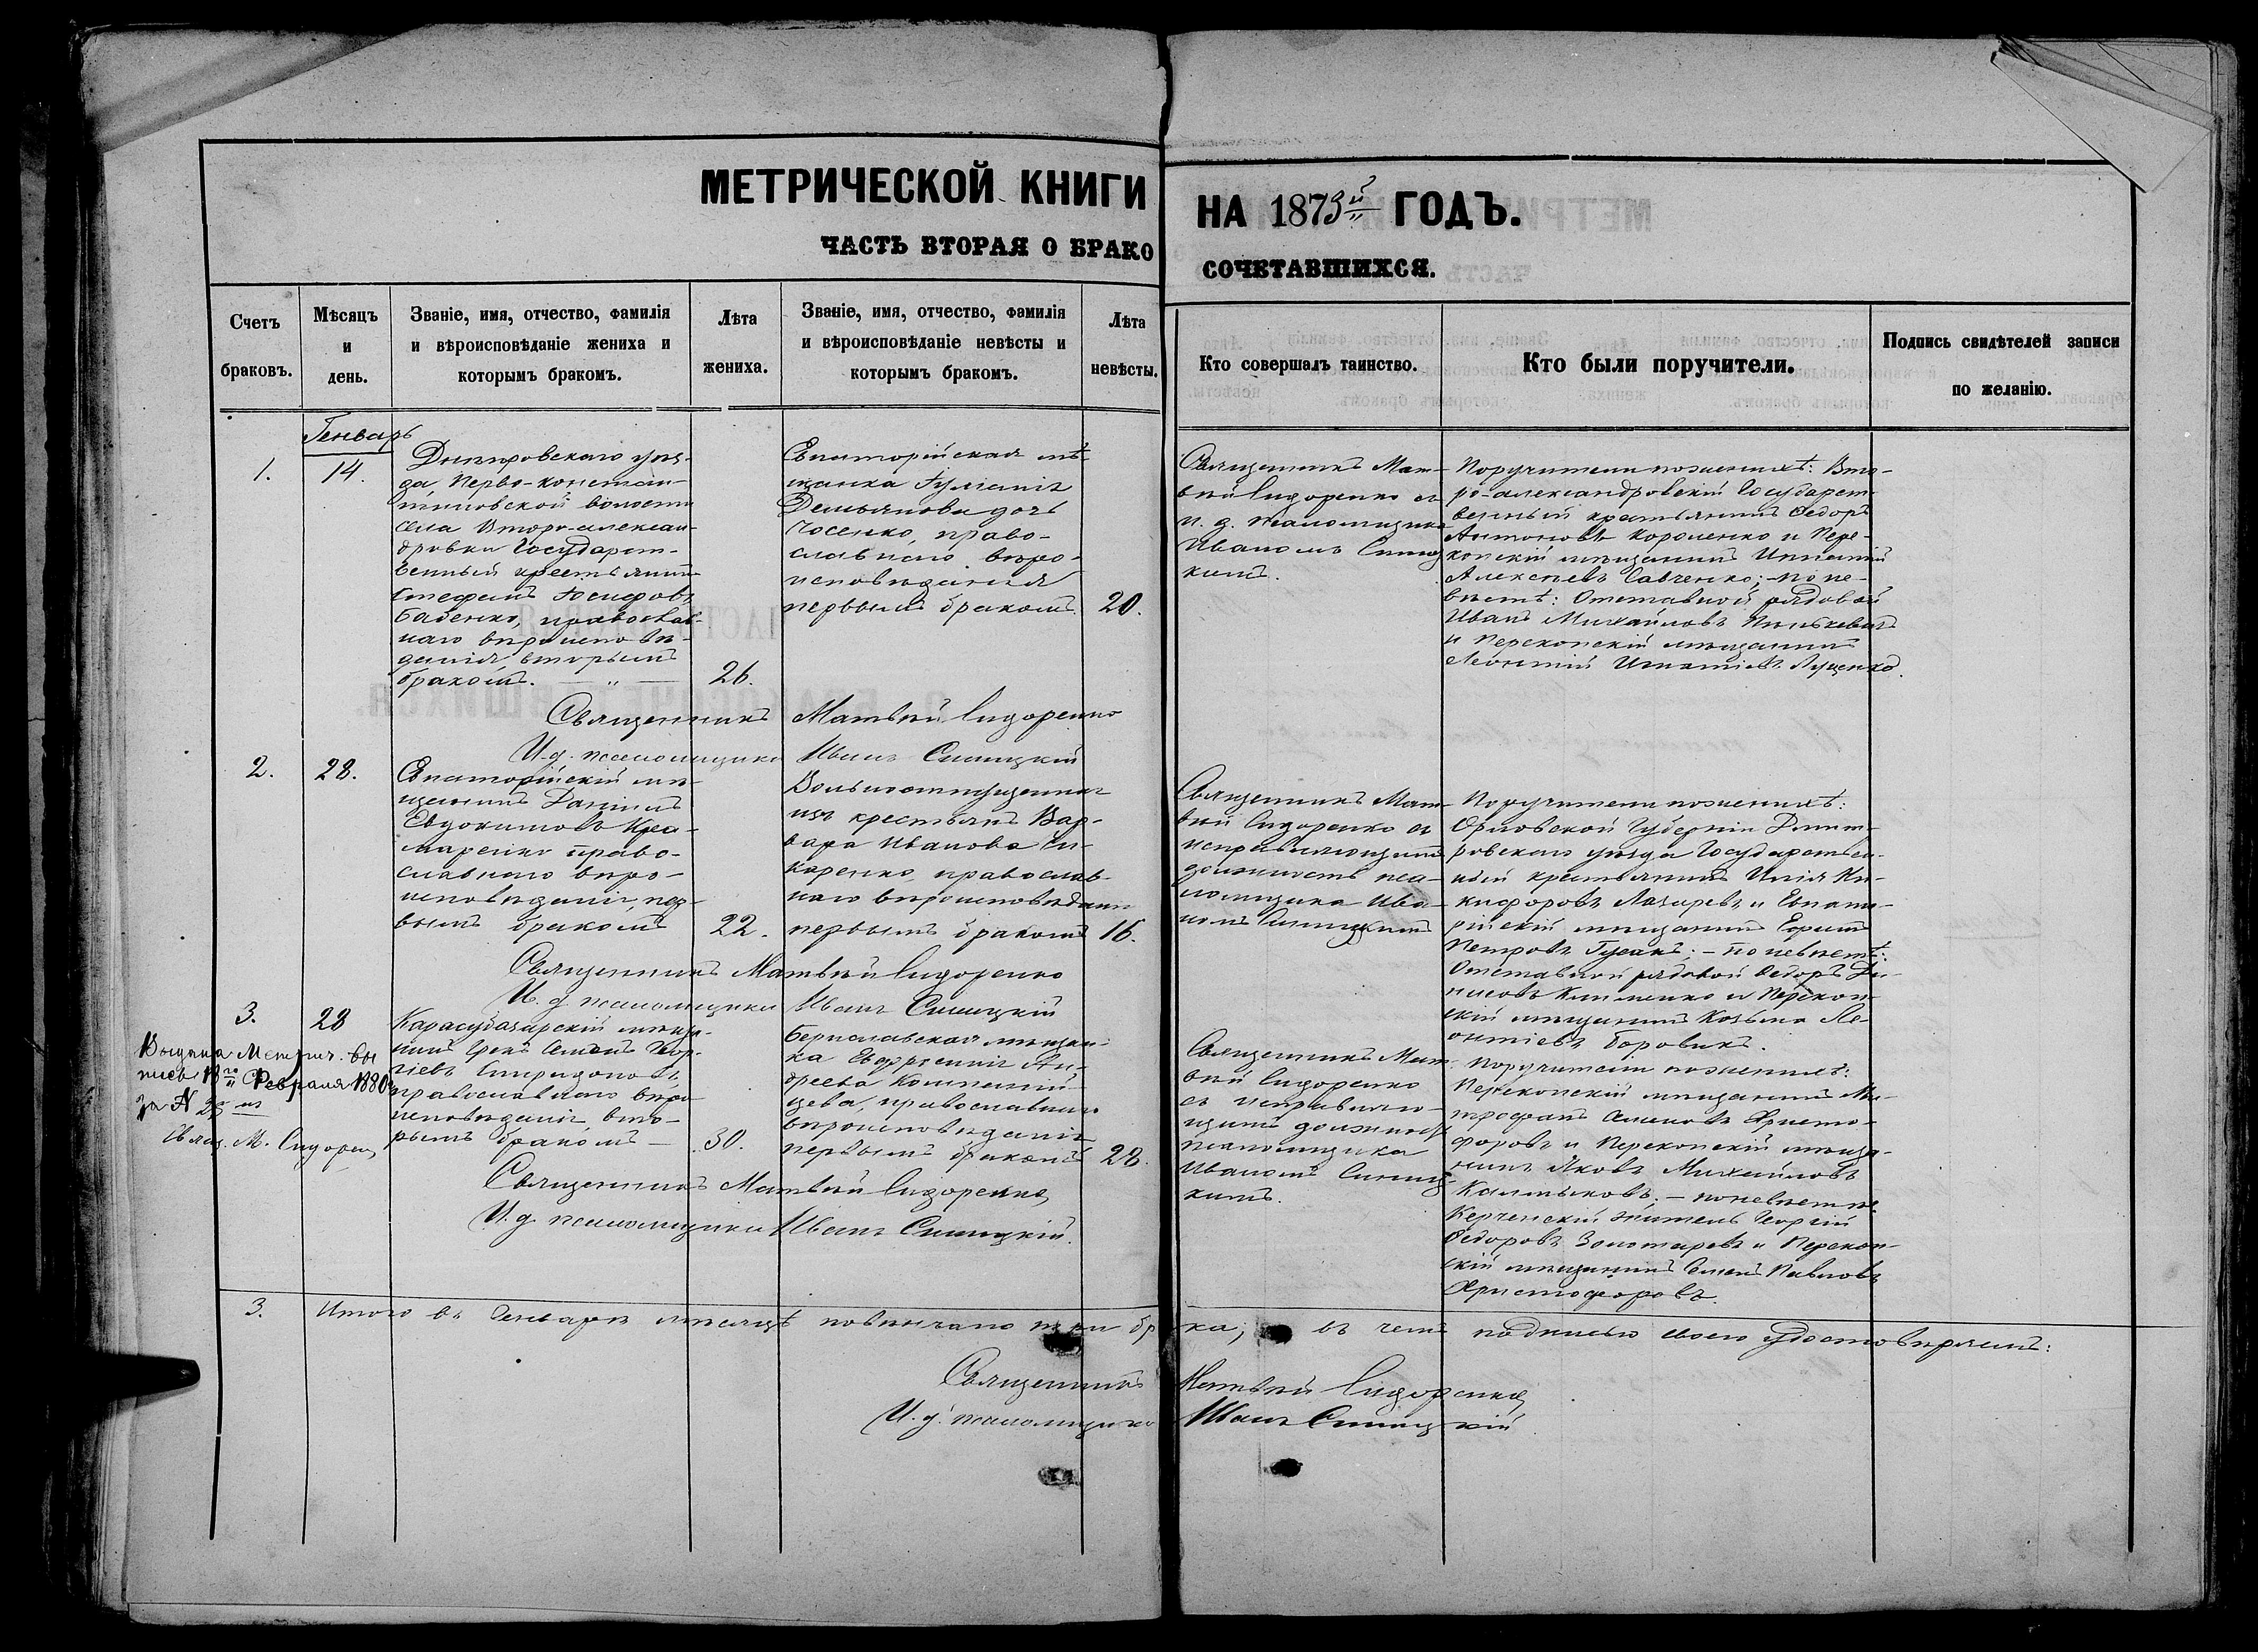 МЕТРИЧЕСКОЙ КНИГИ
ЧАСТЬ ВТОРАЯ О БРАКО
НА 1873й ГОДЪ.
СОЧЕТАВШИХСЯ.
Счетъ браковъ.
Мѣсяцъ и день.
Званіе, имя, отчество, фамилія и вѣроисповѣданіе жениха и которымъ бракомъ.
Лѣта жениха.
Званіе, имя, отчество, фамилія и вѣроисповѣданіе невѣсты и которымъ бракомъ.
Лѣта невѣсты.
Кто совершалъ таинство.
Кто были поручители.
Подпись свидѣтелей записи по желанію.
Генварь
1.
14.
Днѣпровскаго уѣз-
да Перво-констан-
тиновской волости
села Второ-алексан-
дровки Государст-
венный крестьянинъ
Стефанъ Іосифовъ
Бабенко, православ-
наго вѣроисповѣ-
данія, вторымъ
бракомъ. — „ —
26.
Евпаторійская мѣ-
щанка Іуліанія
Демьянова дочь
Чосенко, право-
славнаго вѣро-
исповѣданія
первымъ бракомъ.
20.
Священникъ Мат-
вѣй Сидоренко съ
и. д. псаломщика
Иваномъ Синиц-
кимъ.
Поручители по женихѣ: Вто-
ро-александровскій Государст-
венный крестьянинъ Ѳедоръ
Антоновъ Короленко и Пере-
копскій мѣщанинъ Игнатій
Алексѣевъ Савченко; — по не-
вѣстѣ: Отставной рядовой
Иванъ Михайловъ
и Перекопскій мѣщанинъ
Леонтій Игнатіевъ Луценко.
Священникъ Матвѣй Сидоренко
И. д. псаломщика Иванъ Синицкій
2.
28.
Евпаторійскій мѣ-
щанинъ Даніилъ
Евдокимовъ Кра-
маренко право-
славнаго вѣро-
исповѣданія, пер-
вымъ бракомъ
22.
Вольноотпущенная
изъ крестьянъ Вар-
вара Иванова
православ-
наго вѣроисповѣданія
первымъ бракомъ
16.
Священникъ Мат-
вѣй Сидоренко съ
исправляющимъ
должность пса-
ломщика Ива-
номъ Синицкимъ
Поручители по женихѣ:
Орловской Губерніи Дмит-
ровскаго уѣзда Государствен-
ный крестьянинъ Илія Ни-
кифоровъ Лазаревъ и Евпато-
рійскій мѣщанинъ
Петровъ Гусакъ; — по невѣстѣ:
Отставной рядовой Ѳедоръ Де-
нисовъ Клименко и Перекоп-
скій мѣщанинъ Козьма Ле-
онтіевъ Боровикъ.
Священникъ Матвѣй Сидоренко
И. д. псаломщика Иванъ Синицкій
3.
28
Выдана Метрич. вы
пись 13го Февраля 1880г
за N 25
Свящ. М. Сидорен
Карасубазарскій мѣща-
нинъ Грекъ Семенъ Геор-
гіевъ Спиридоновъ,
православнаго вѣро-
исповѣданія, вто-
рымъ бракомъ —
30.
Бериславская мѣщан-
ка Евфросинія Ан-
дреева
цева, православнаго
вѣроисповѣданія
первымъ бракомъ
28.
Священникъ Мат-
вѣй Сидоренко
съ исправляю-
щимъ должность
псаломщика
Иваномъ Синиц-
кимъ.
Поручители по женихѣ:
Перекопскій мѣщанинъ Ми-
трофанъ Семеновъ Христо-
форовъ и Перекопскій мѣща-
нинъ Яковъ Михайловъ
Калмыковъ. — по невѣстѣ
Керченскій житель Георгій
Ѳедоровъ Золотаревъ и Перекоп-
скій мѣщанинъ Семенъ Павловъ
Христофоровъ.
Священникъ Матвѣй Сидоренко
И. д. псаломщика Иванъ Синицкій.
3. Итого въ Генварѣ мѣсяцѣ повѣнчано три бра
ка, въ чемъ подписью своею удостовѣряемъ:
Священникъ Матвѣй Сидоренко
И. д. псаломщика Иванъ Синицкій